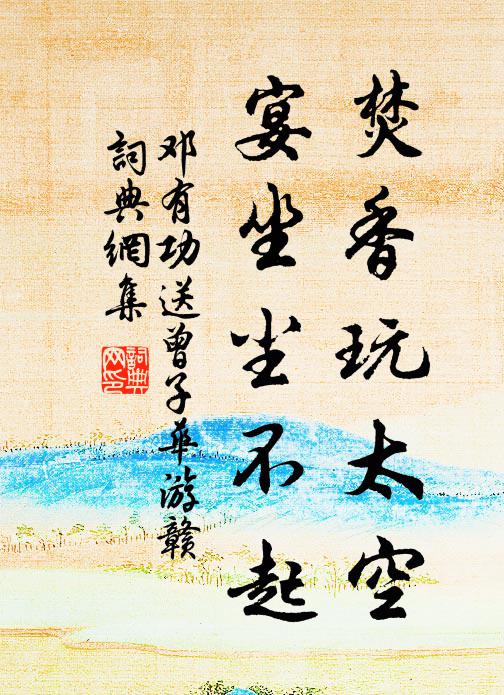 焚香玩太空
宴坐尘不起
邓有功送曾子华游赣
詞典網集
詞典网印